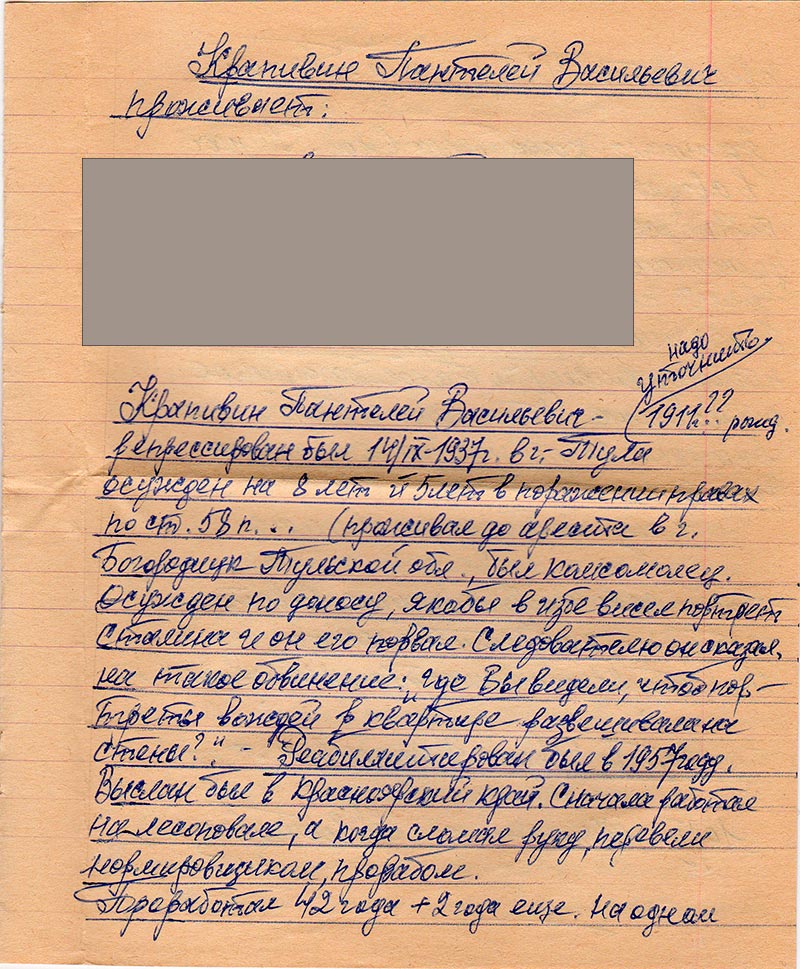 Крапивин Пантелей Васильевич
проживает:
надо
уточнить
Крапивин Пантелей Васильевич - (1911г.?? рожд.
репрессирован был 14/IX-1937г. в г. Тула
осужден на 8 лет и 5 лет в поражении правах
по ст. 58 п... (проживал до ареста в г.
Богородицк Тульской обл., был комсомолец.
Осужден по доносу, якобы в избе висел портрет
Сталина и он его порвал. Следователю он сказал,
на такое обвинение: "где Вы видели, чтоб пор-
треты вождей в квартире развешивала на
стены?" - Реабилитирован был в 1957 году.
Выслан был в Красноярский край. Сначала работал
на лесоповале, а когда сломал руку, перевели
нормировщиком, прорабом.
Проработал 42 года + 2 года еще. На одном